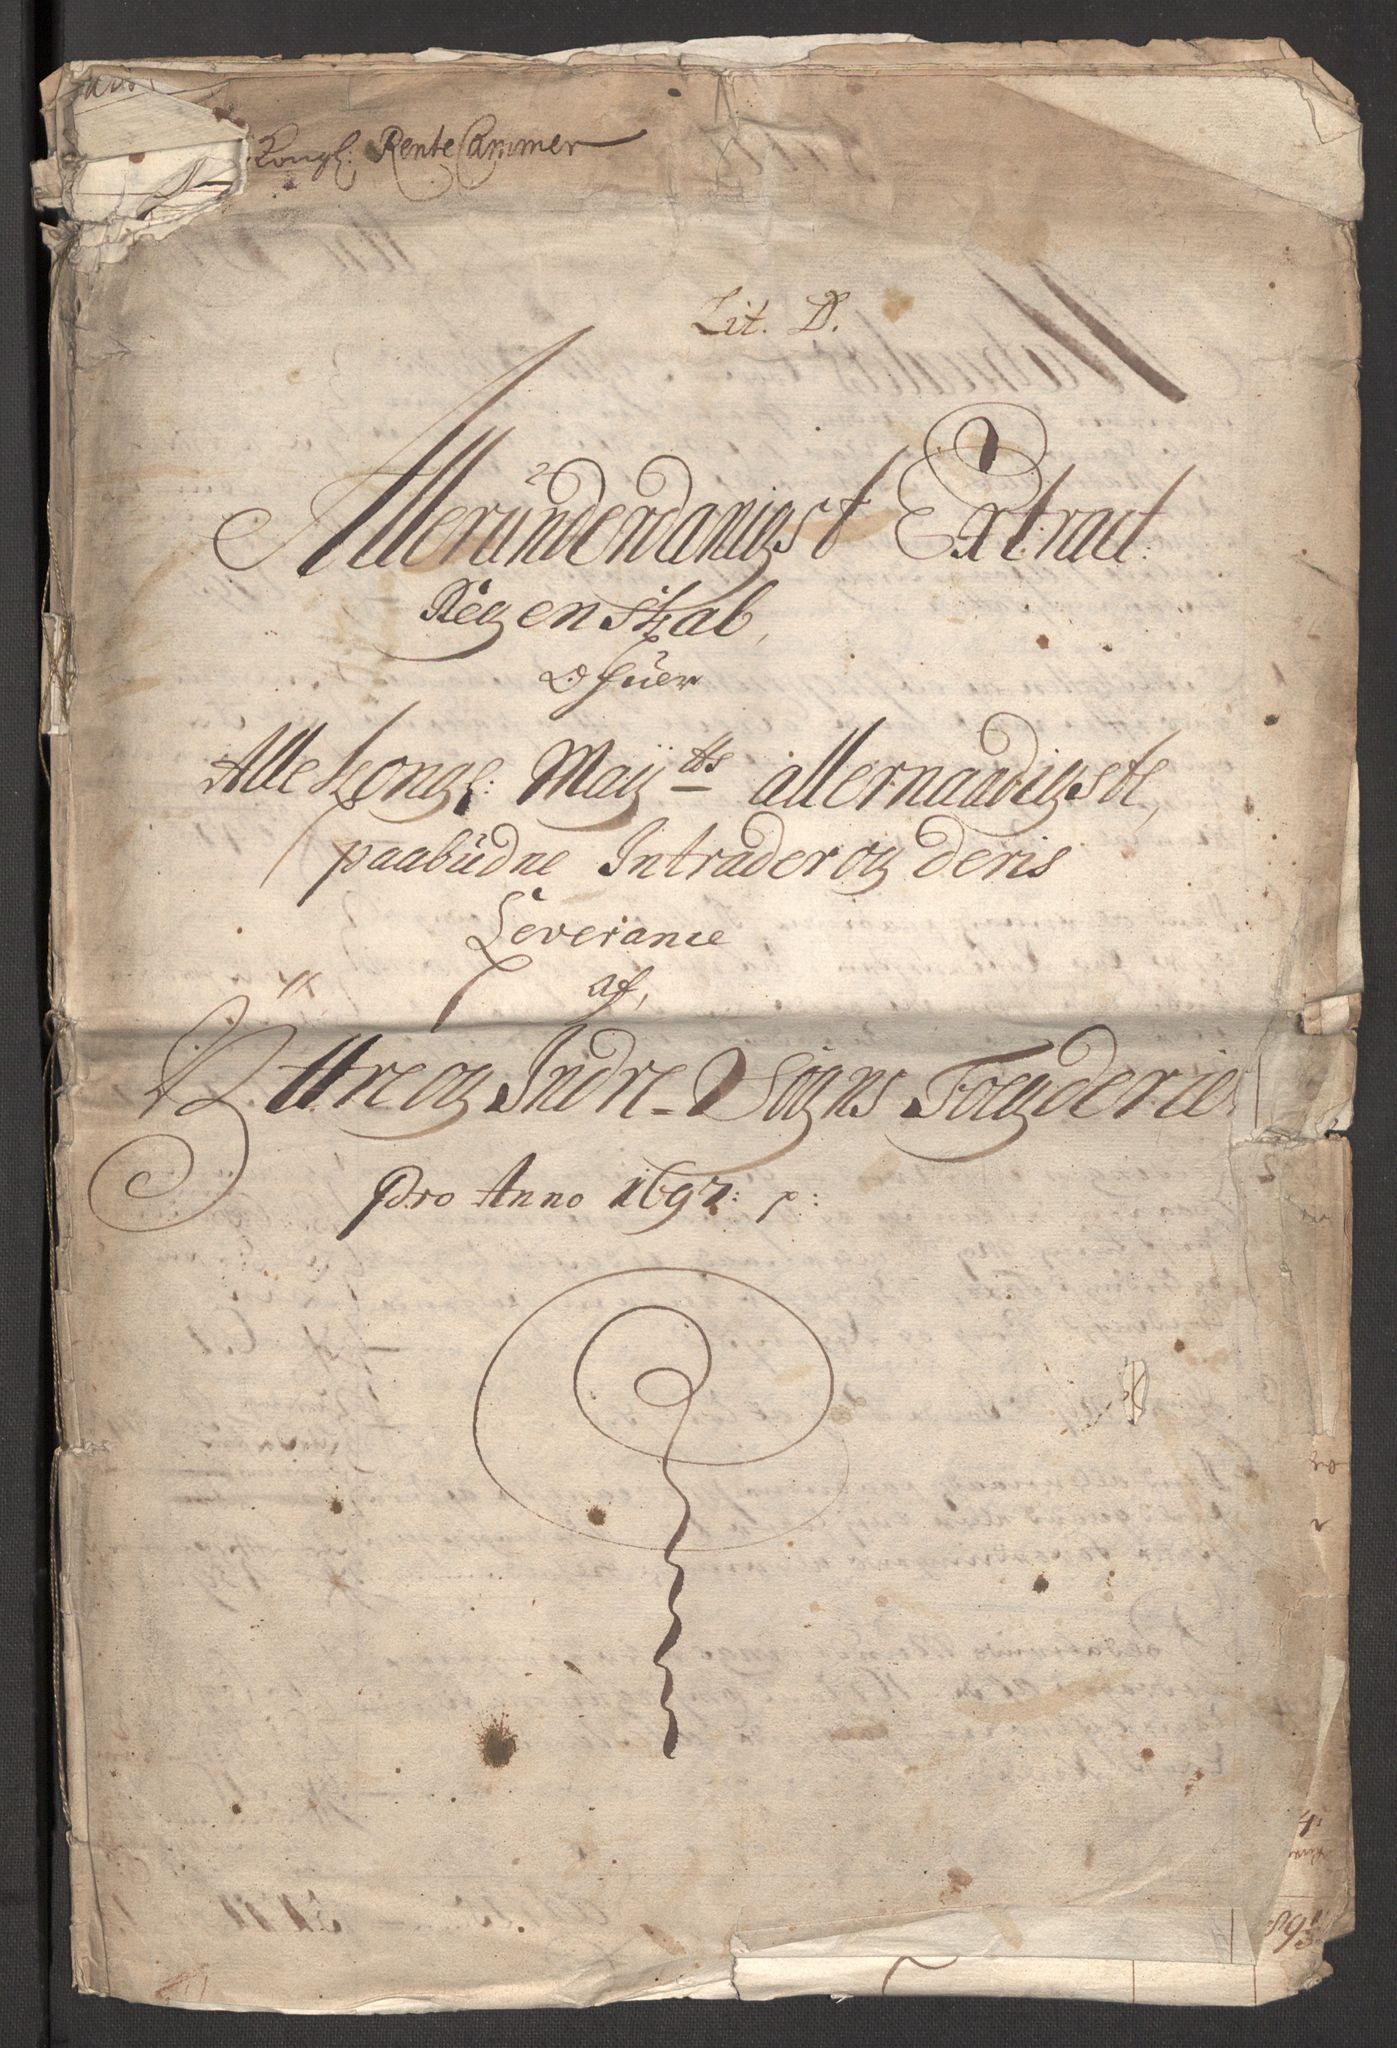 Kongl: Rente Cammer
Lit. D.
Alleründerdanigst Extract
Regenskab,
Ofuer
Alle Kongl: Maÿtts allernaadigste,
paabüdne Intrader og deris
Leverance
af,
Yttre og Indre-Sogns Fogderie
Pro Anno 1697: p: